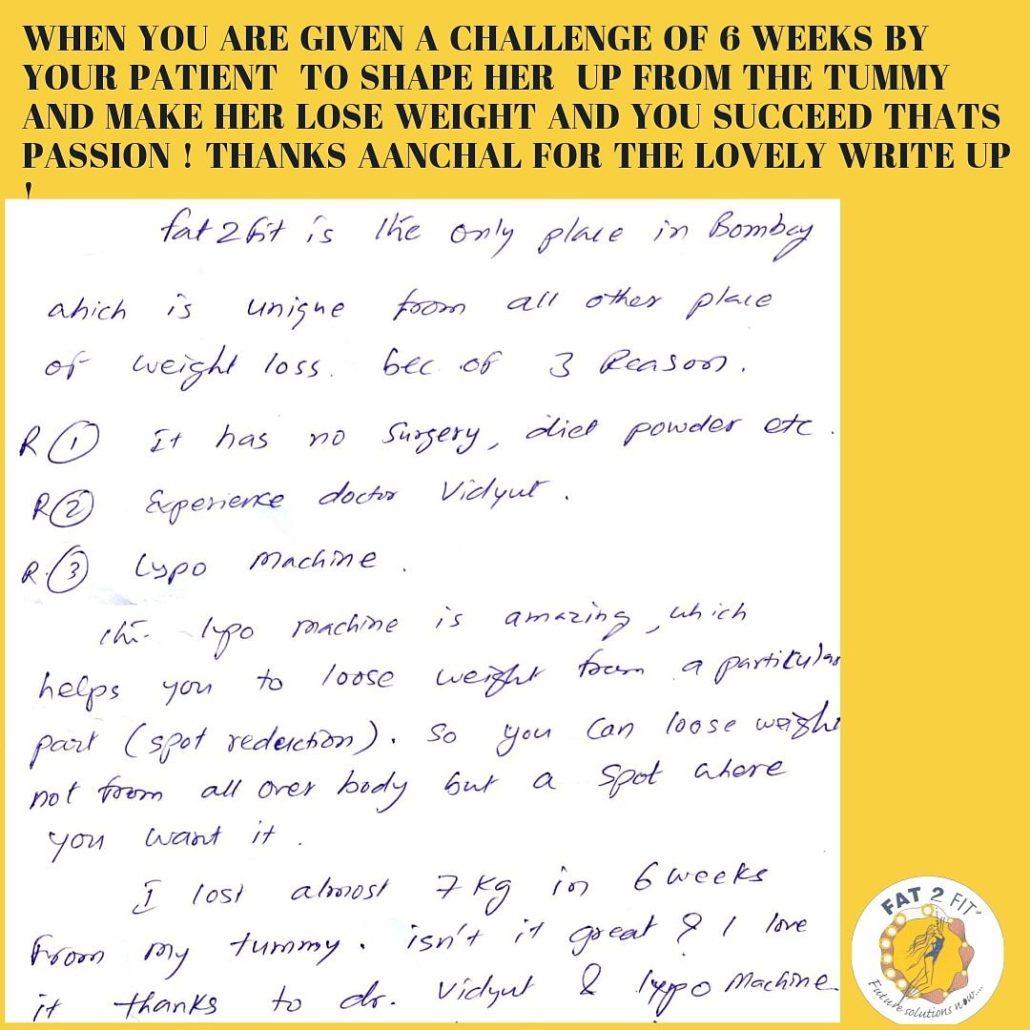 WHEN YOU ARE GIVEN A CHALLENGE OF 6 WEEKS BY
YOUR PATIENT TO SHAPE HER UP FROM THE TUMMY
AND MAKE HER LOSE WEIGHT AND YOU SUCCEED THATS
PASSION ! THANKS AANCHAL FOR THE LOVELY WRITE UP
!
fat2fit is the only place in Bombay
which is unique from all other place
of weight loss. bec of 3 Reason.
R ① It has no Surgery, diet powder etc.
R ② Experience doctor Vidyut.
R. ③ Lypo machine.
the lypo machine is amazing, which
helps you to loose weight from a particular
part (spot reduction). So you can loose weight
not from all over body but a spot where
you want it.
I lost almost 7 kg in 6 weeks
from my tummy. isn't it great ? I love
it thanks to dr. Vidyut & lypo machine
FAT 2 FIT
Future solutions now....